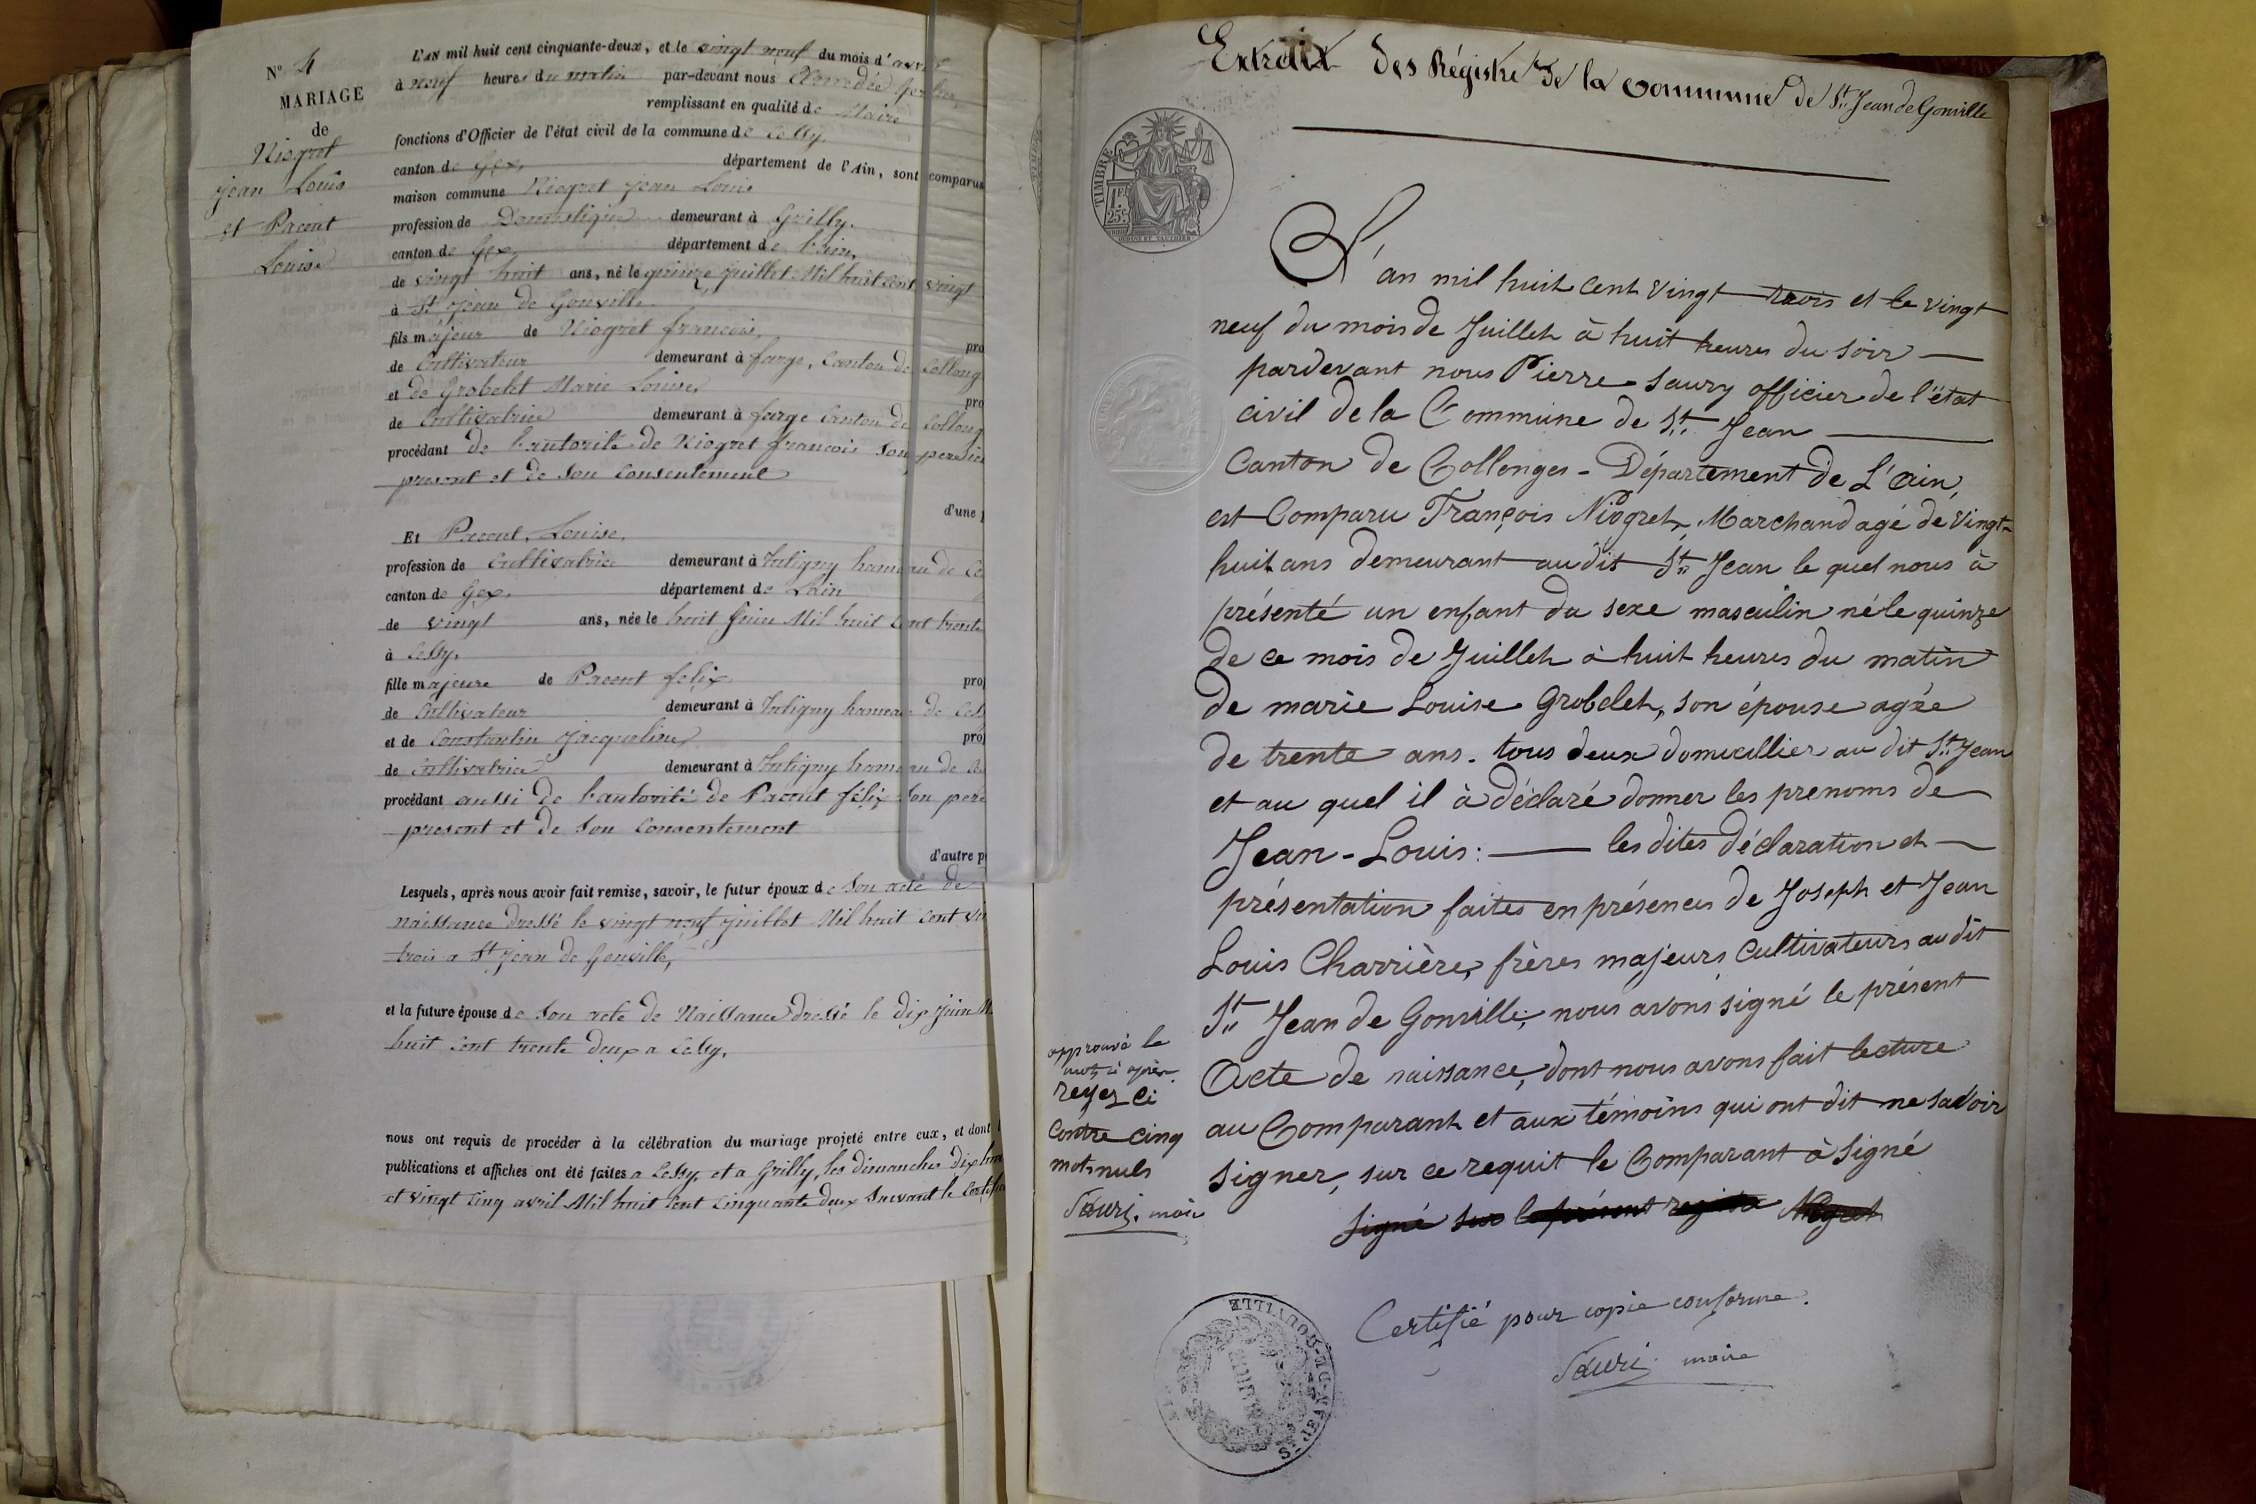 N° 4
MARIAGE
de
Niogret
jean Louis
et Pacout
Louise
L'AN mil huit cent cinquante-deux, et le vingt neuf du mois d'avril
à neuf heures du matin par-devant nous
remplissant en qualité de Maire
fonctions d'Officier de l'état civil de la commune de Cessy,
canton de Gex, département de l'Ain, sont comparus
maison commune Niogret jean Louis
profession de Domestique demeurant à Grilly.
canton de Gex, département de l'ain,
de vingt huit ans, né le quinze juillet Mil huit cent vingt
à St jean de Gonville
fils majeur de Niogret françois,
pro
de Cultivateur demeurant à farge, Canton de Collong
et de Grobelet Marie Louise,
pro
de Cultivatrice demeurant à farge Canton de Collong
procédant de l'autorité de Niogret françois son pere ici
present et de son consentement
d'une p
Et Pacout, Louise,
profession de Cultivatrice demeurant à hameau de Ce
canton de Gex, département de Lain
de vingt ans, née le huit juin Mil huit cent trente
à Cessy,
fille majeure de Pacout felix
pro
de Cultivateur demeurant à hameau de Cess
et de Constantin jacqueline,
pro
de Cultivatrice demeurant à hameau de Ce
procédant aussi de l'autorité de Pacout félix son pere
present et de son consentement
d'autre p
Lesquels, après nous avoir fait remise, savoir, le futur époux de son acte de
naissance dressé le vingt neuf juillet Mil huit cent vin
trois a St jean de Gonville,
et la future épouse de son acte de Naissance dressé le dix juin M
huit cent trente deux a Cessy,
nous ont requis de procéder à la célébration du mariage projeté entre eux, et dont l
publications et affiches ont été faites a Cessy, et a Grilly, les dimanches dix huit
et vingt cinq avril Mil huit cent cinquante deux suivant le certifica
Extrait des Régistre de la Commune de St Jean de Gonville
TIMBRE
1F.
25C.
L'an mil huit cent vingt trois et le vingt
neuf du mois de Juillet à huit heures du soir —
pardevant nous Pierre Saury officier de l'état
civil de la Commune de St Jean —
Canton de Collonges - Département de L'ain,
est Comparu François Niogret, Marchand agé de vingt
huit ans demeurant audit St Jean le quel nous à
présenté un enfant du sexe masculin né le quinze
de ce mois de Juillet à huit heures du matin
de marie Louise Grobelet, son épouse agée
de trente ans. tous deux domicillier au dit St Jean
et au quel il à déclaré donner les prenoms de
Jean-Louis: — les dites déclaration et —
présentation faites en présences de Joseph et Jean
Louis Charrière, frères majeurs Cultivateurs au dit
St Jean de Gonville, nous avons signé le présent
Acte de naissance, dont nous avons fait lecture
au Comparant et aux témoins qui ont dit ne savoir
signer, sur ce requit le Comparant à signé
signé sur le présent registre Niogret
approuvé le
mot ci après
reyer ci
contre cinq
mots nuls
Sauri, maire
Certifié pour copie conforme.
Sauri maire
MAIRIE
ST-JEAN-DE-GONVILLE